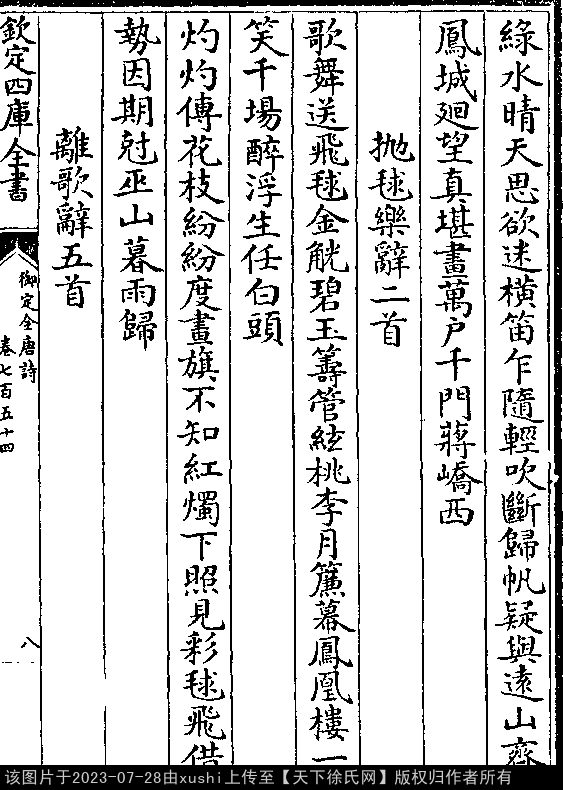 綠水晴天思欲迷橫笛乍隨輕吹斷歸帆疑與遠山齊
鳳城廻望真堪畫萬户千門蔣嶠西
抛毬樂辭二首
歌舞送飛毬金觥碧玉籌管絃桃李月簾幕鳳凰樓一
笑千場醉浮生任白頭
灼灼傳花枝紛紛度畫旗不知紅燭下照見彩毬飛借
勢因期尅巫山暮雨歸
離歌辭五首
欽定四庫全書
御定全唐詩
卷七百五十四
八
该图片于2023-07-28由xushi上传至【天下徐氏网】版权归作者所有